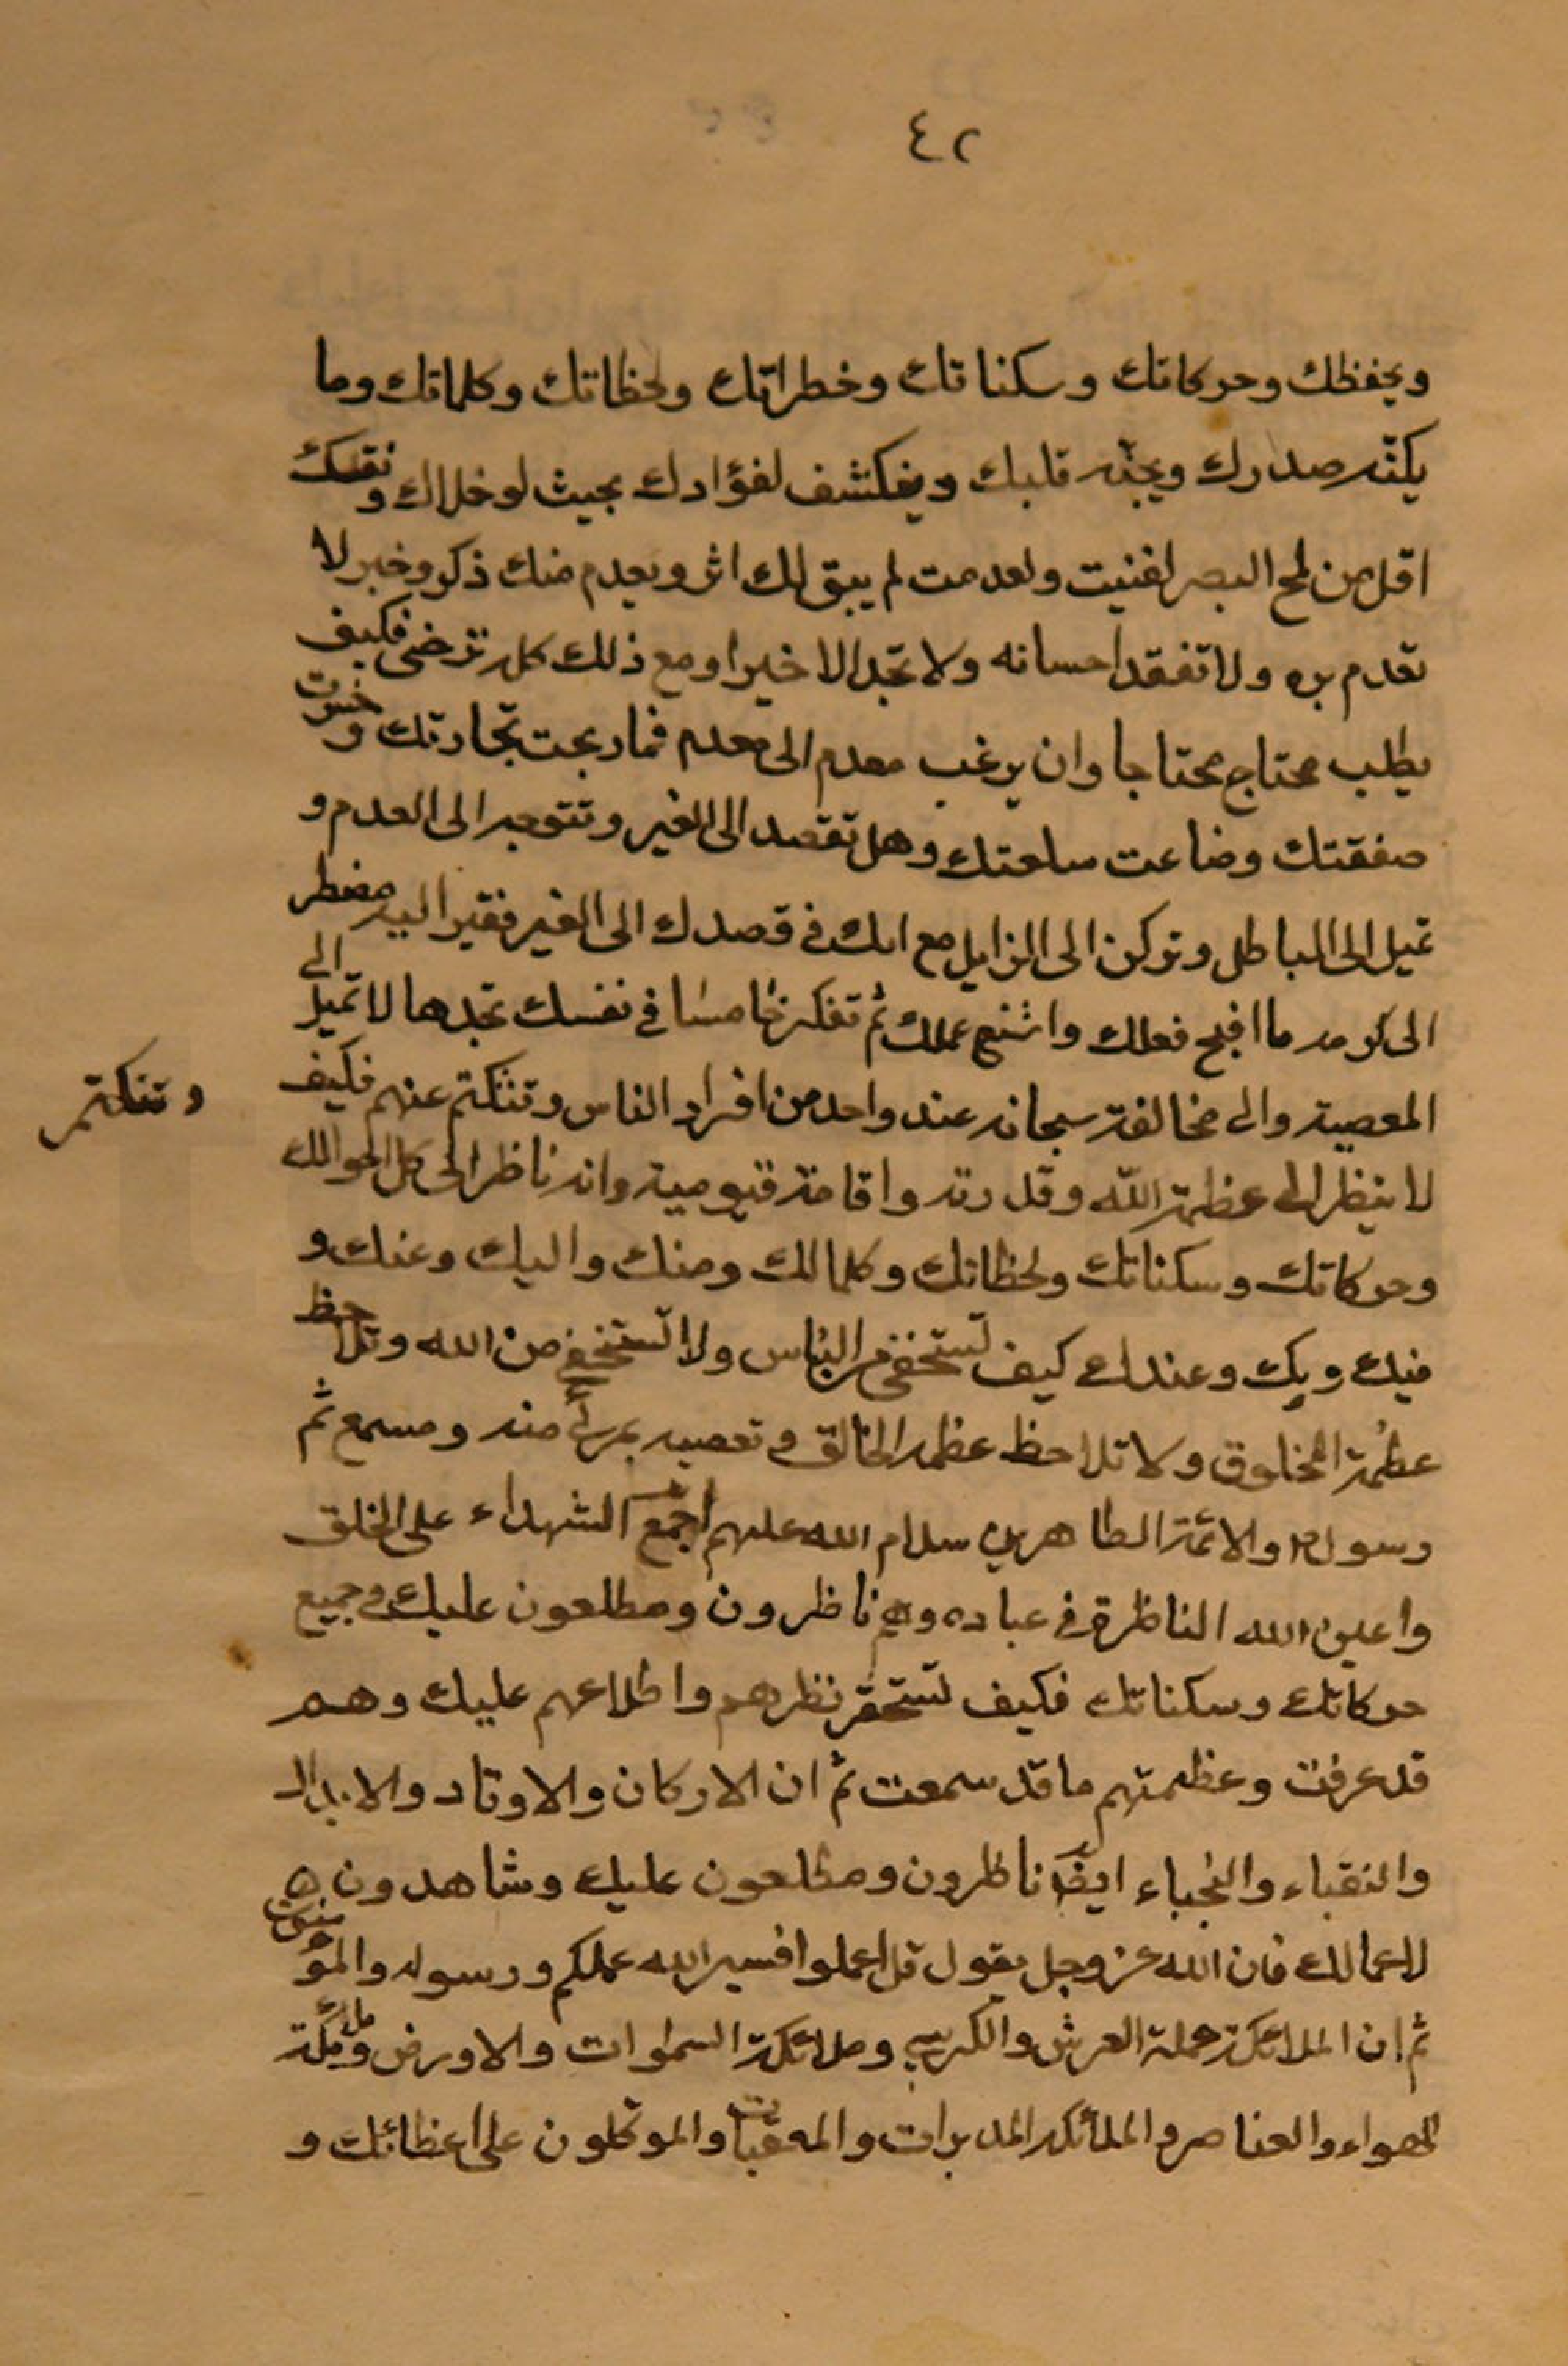 ٤٢
ويحفظك وحركاتك وسكناتك وخطراتك ولحظاتك وكلماتك وما
يكنّه صدرك ويجنّه قلبك وينكشف لفؤادك بحيث لو خلاك ونفسك
اقل من لمح البصر لفنيت ولعدمت لم يبق لك اثر ويعدم منك ذكر وخبر لا
تعدم بره ولا تفقد احسانه ولا تجد الا خيرا ومع ذلك كله ترضى فكيف
يطلب محتاج محتاجا وان يرغب معدم الى معدم فما ربحت تجارتك وخسرت
صفقتك وضاعت سلعتك وهل تقصد الى الغير وتتوجه الى العدم و
تميل الى الباطل وتركن الى الزايل مع انك في قصدك الى الغير فقير اليه مضطر
الى كرمه ما اقبح فعلك واشنع عملك ثم تفكر خامسا في نفسك تجدها لا تميل الى
المعصية والى مخالفته سبحانه عند واحد من افراد الناس وتنكتم عنهم فكيف
وتنكتم
لا ينظر الى عظمة اللّه وقدرته واقامة قيومية وانه ناظر الى كل احوالك
وحركاتك وسكناتك ولحظاتك وكلما لك ومنك واليك وعنك و
فيك وبك وعندك كيف تستخفي من الناس ولا تستخفي من الله وتلاحظ
عظمة المخلوق ولا تلاحظ عظمة الخالق وتعصيه بمرئ منه ومسمع ثم
رسوله والائمة الطاهرين سلام الله عليهم اجمع الشهداء على الخلق
واعين الله الناظرة في عباده وهم ناظرون ومطلعون عليك في جميع
حركاتك وسكناتك فكيف تستحقر نظرهم واطلاعهم عليك وهم
قد عرفت وعظمتهم ما قد سمعت ثم ان الاركان والاوتاد والابدال
والنقباء والنجباء ايضا ناظرون ومطلعون عليك وشاهدون
لاعمالك فان الله عز وجل يقول قل اعملوا فسيرالله عملكم ورسوله والمؤمنون
ثم ان الملائكة حملة العرش والكرسي وملائكة السموات والاورض وملائكة
الهواء والعناصر والملائكة المدبرات والمعقبات والموكلون على اعظائك و